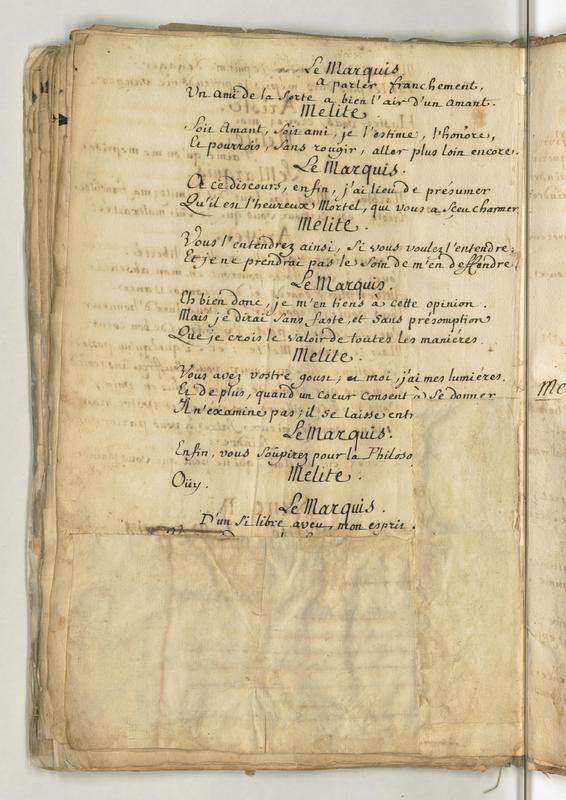 Le Marquis
a parler franchement,
Un ami de la Sorte a bien l'air d'un amant.
Melite
Soit Amant, Soit ami, je l'estime, l'honore,
Et pourrois, Sans rougir, aller plus loin encore.
Le Marquis.
A ce discours, enfin, j'ai lieu de présumer
Qu'il est l'heureux Mortel, qui vous a Sçeu charmer
Melite.
Vous l'entendrez ainsi, Si vous voulez l'entendre;
Et je ne prendrai pas le Soin de m'en deffendre.
Le Marquis.
Eh bien donc, je m'en tiens à cette opinion.
Mais je dirai Sans faste, et Sans présomption
Que je crois le valoir de toutes les maniéres.
Melite.
Vous avez vostre goust; et moi, j'ai mes lumiéres.
Et de plus, quand un coeur consent à Se donner
Il n'examine pas; il se laisse entr
Le Marquis.
Enfin, vous Soupirez pour la Philoso
Melite.
Oüy.
Le Marquis.
D'un Si libre aveu, mon esprit
Me